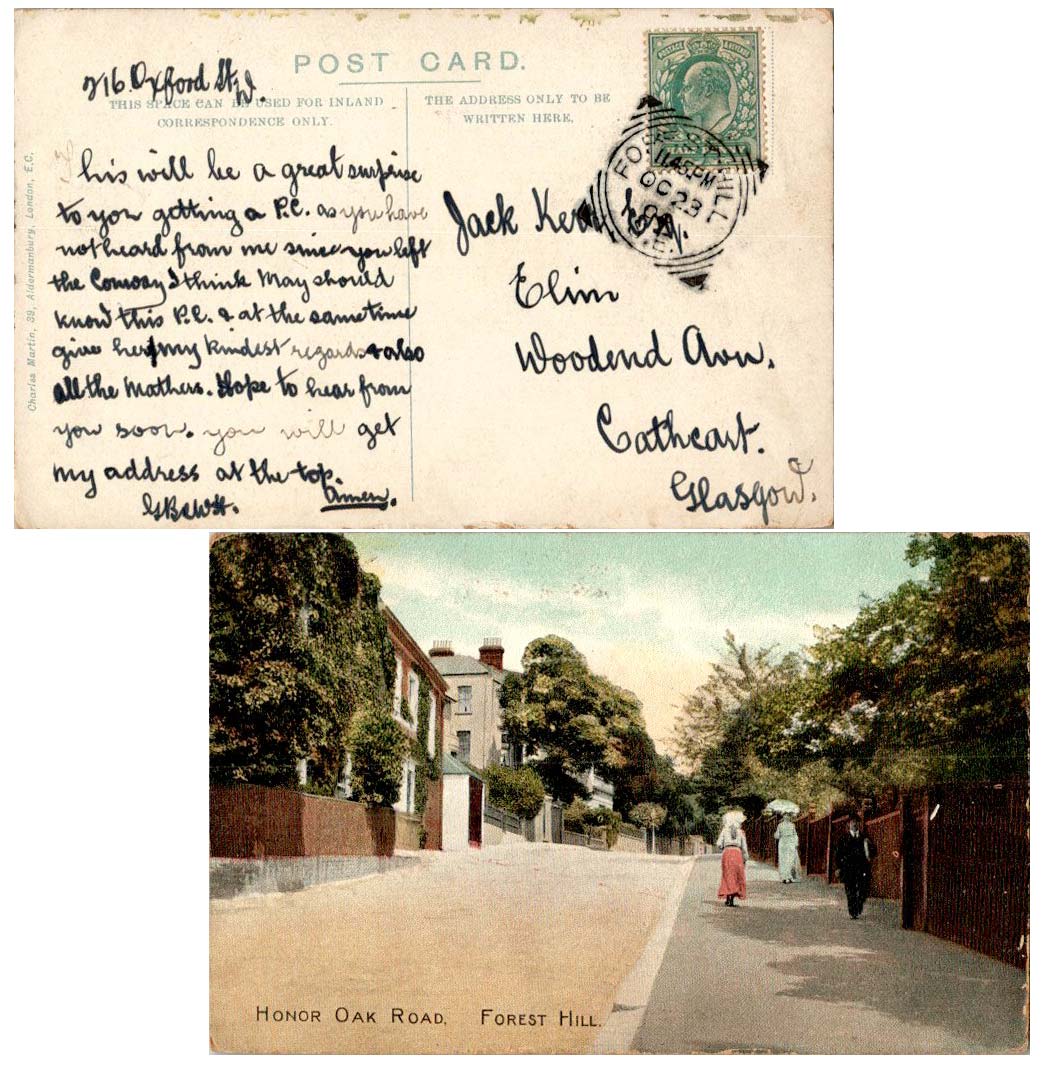 POST CARD.
216. Oxford St, W.
THIS SPACE CAN BE USED FOR INLAND
CORRESPONDENCE ONLY.
THE ADDRESS ONLY TO BE
WRITTEN HERE.
This will be a great surprise
to you getting a P.C. as you have
not heard from me since you left
the Conway I think May should
know this P.C. & at the same time
give her my kindest regards & also
all the Mathers. Hope to hear from
you soon. you will get
my address at the top.
Amen.
Jack
Elim
Woodend Avn.
Cathcart.
Glasgow.
POSTAGE & REVENUE
HALF
FOREST HILL
11.45 PM
OC 23
S.E.
Charles Martin, 39, Aldermanbury, London, E.C.
HONOR OAK ROAD, FOREST HILL.